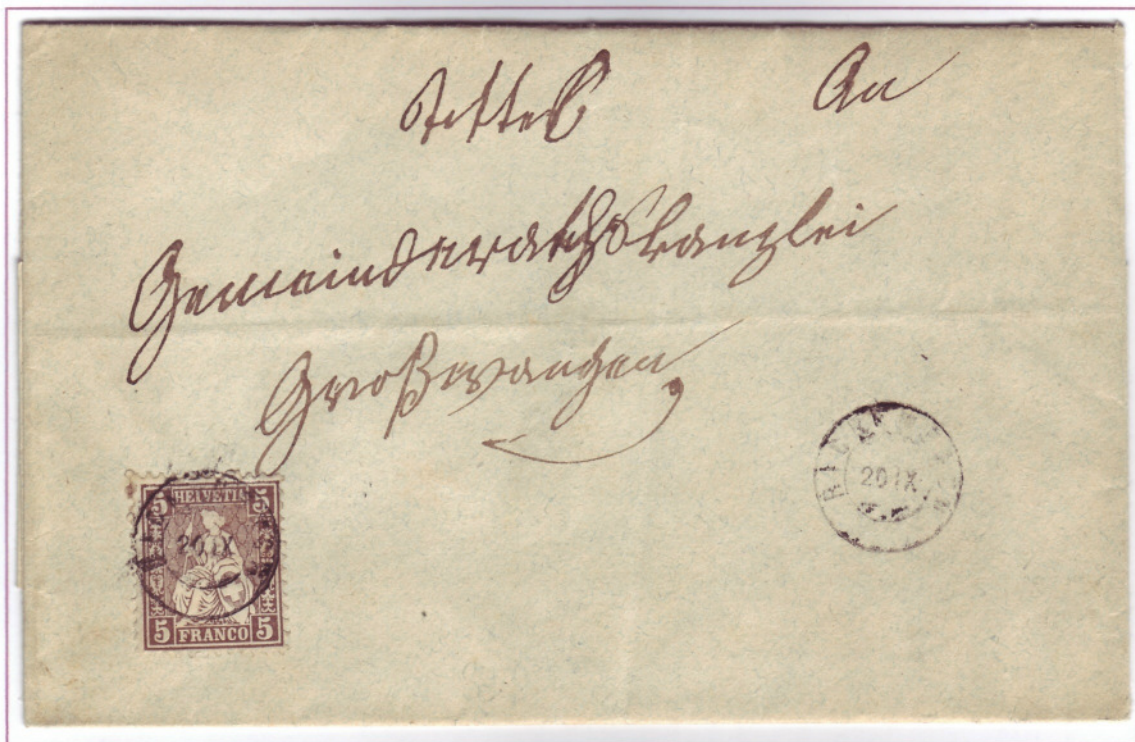 An
Gemeinderathskanzlei
Großwangen
5 HELVETIA 5
20 IX
5 FRANCO 5
20 IX